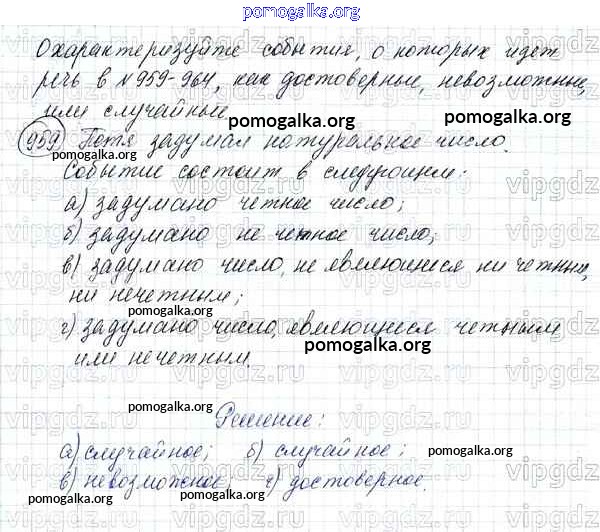 pomogalka.org
Охарактеризуйте события, о которых идет
речь в №959-964, как достоверные, невозможные,
или случайные
pomogalka.org
959 Петя задумал натуральное число.
pomogalka.org
Событие состоит в следующем:
а) задумано четное число;
pomogalka.org
б) задумано не четное число;
в) задумано число, не являющиеся ни четным,
ни нечетным;
pomogalka.org
г) задумано число, являющиеся четным
или нечетным.
pomogalka.org
pomogalka.org
pomogalka.org
Решение:
а) случайное; б) случайное;
pomogalka.org
в) невозможное; г) достоверное.
pomogalka.org
pomogalka.org
vipgdz.ru